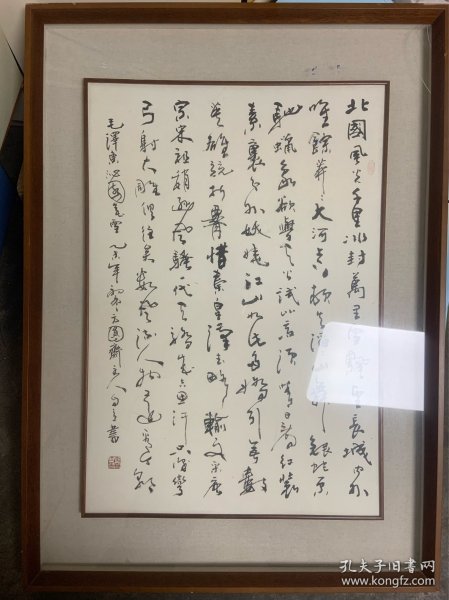 北國風光千里冰封萬里雪飄望長城內外
唯餘莽莽大河上下頓失滔滔山舞銀蛇原
馳蠟象欲與天公試比高須晴日看紅裝
素裹分外妖嬈江山如此多嬌引無數
英雄競折腰惜秦皇漢武略輸文采唐
宗宋祖稍遜風騷一代天驕成吉思汗只識彎
弓射大雕俱往矣數風流人物還看今朝
毛澤東沁園春雪
孔夫子旧书网
www.kongfz.com